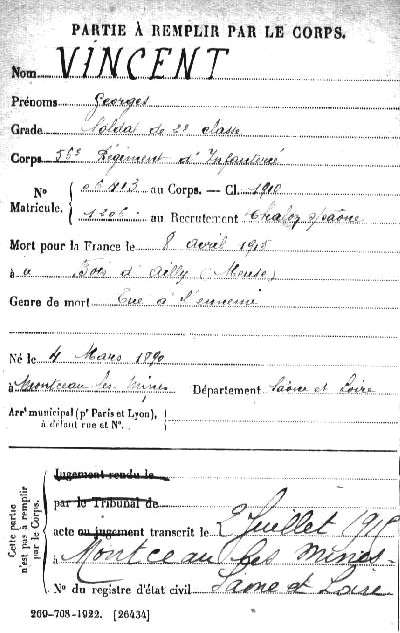 PARTIE À REMPLIR PAR LE CORPS.
Nom VINCENT
Prénoms Georges
Grade Soldat de 2e classe
Corps 56e Régiment d'Infanterie
No Matricule. 06113 au Corps. — Cl. 1910
1206 au Recrutement Chalon s/Saône
Mort pour la France le 8 avril 1915
à u Bois d'Ailly (Meuse)
Genre de mort Tué à l'ennemi
Né le 4 Mars 1890
à Montceau les Mines Département Saône et Loire
Arrt municipal (pr Paris et Lyon), à défaut rue et No.
Cette partie n'est pas à remplir par le Corps.
Jugement rendu le
par le Tribunal de
acte ou jugement transcrit le 2 Juillet 1915
à Montceau les Mines
No du registre d'état civil Saône et Loire
269-708-1922. [26434]